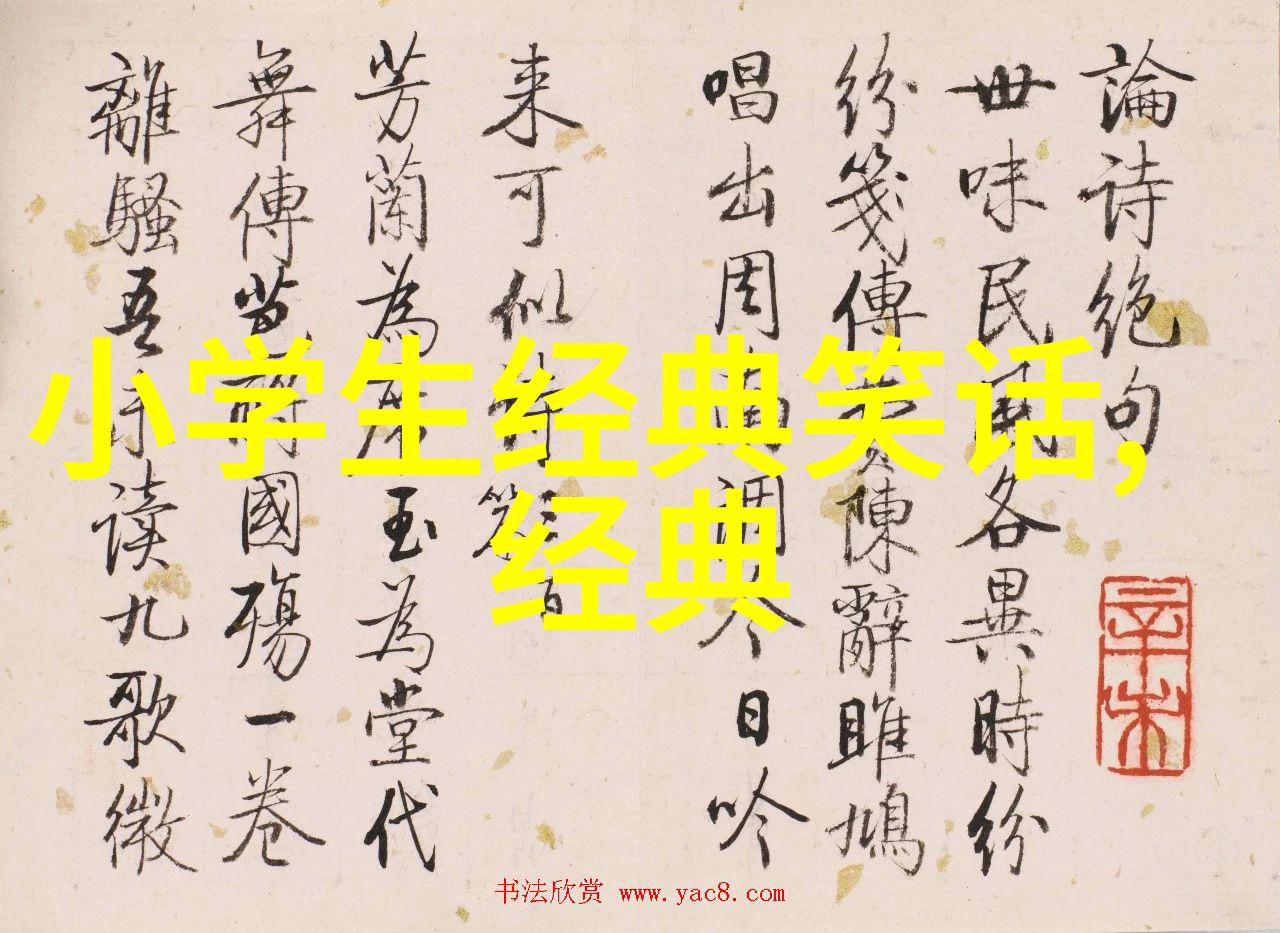 小学生经典笑话,
经典
論诗绝句
世味民風各異時紛
紛箋傳陳辭雎鳩
唱出周南調今日吟
来可似
芳蘭為席玉為堂代
舞傳芭酹國殤一卷
離騷吾读九歌微
辛未
书法欣赏 www.yac8.com